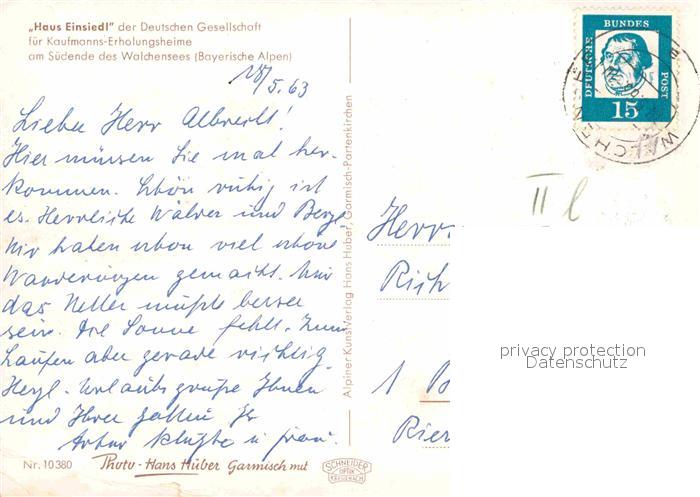 „Haus Einsiedl" der Deutschen Gesellschaft
für Kaufmanns-Erholungsheime
am Südende des Walchensees (Bayerische Alpen)
18/5.63
Lieber Herr Albrecht!
Hier müssen Sie mal her-
kommen. Schön ruhig ist
es. Herrliche Wälder und Berge
Wir haben schon viel schöne
Wanderungen gemacht. Nur
das Wetter müßte besser
sein. Die Sonne fehlt. Zum
Laufen aber gerade richtig.
Herzl. Urlaubsgrüße Ihnen
und Ihrer Gattin Ihr
Artur u Frau.
Nr. 10380 Photo - Hans Huber Garmisch mit
SCHNEIDER
OPTIK
KREUZNACH
Alpiner Kunstverlag Hans Huber, Garmisch-Partenkirchen
DEUTSCHE BUNDES POST
15
II
Herrn
1 B
Rier
privacy protection
Datenschutz